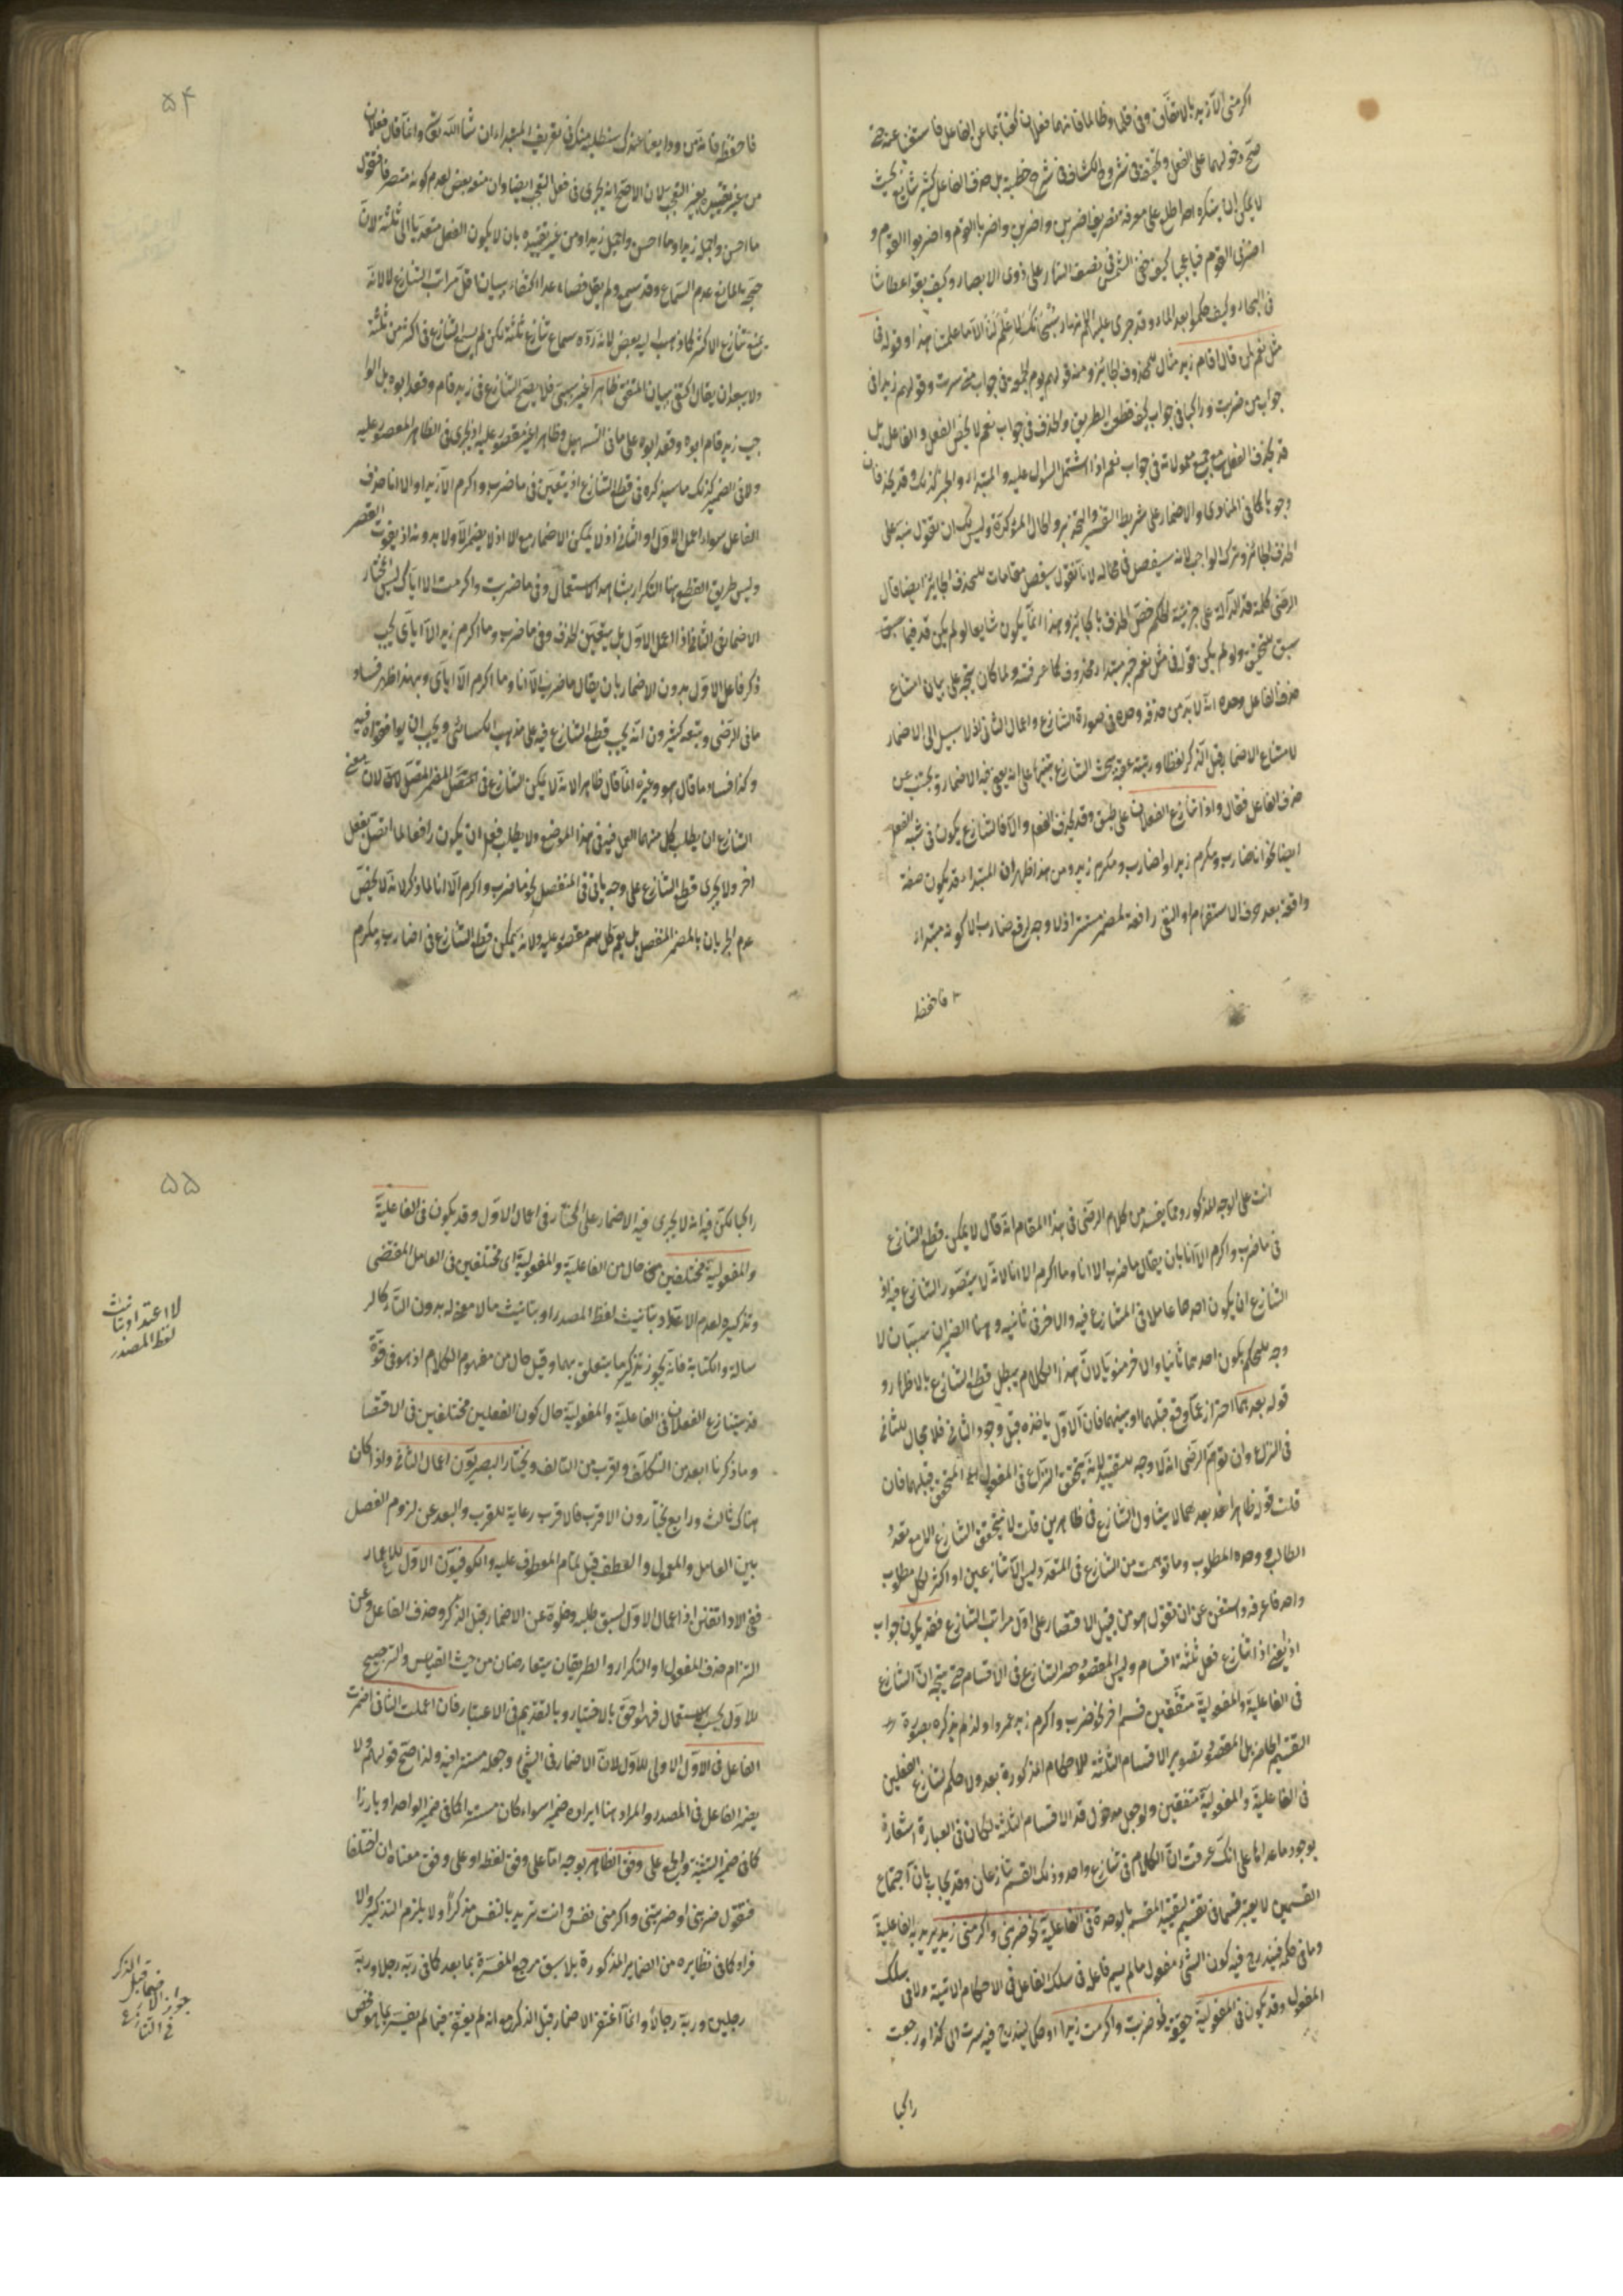 اكرمنى الا زيد بالاتفاق وفى قلما وطالما فانهما فعلان كفتا بما عن الفاعل فاستغنى عنه حتى
صح دخولهما على الفعل وتحقيقه فى شروح الكشاف فى شرح خطبته بل حذف الفاعل كثير شايع بحيث
لا يمكن ان ينكره
اضربن القوم فيا عجبا كيف خفى الشمس فى نصف النهار على ذوى الابصار وكيف بقوا عطاشا
فى البحار وكيف حكموا بعد الماء وقد جرى عليه سبحانك لا علم لنا الا ما علمتنا هذا وقوله فى
مثل نعم لمن قال اقام زيد مثال للحذف الجائز ومنه قولهم يوم الجمعة فى جواب متى سرت وقولهم زيدا فى
جواب من ضربت وراكبا فى جواب كيف قطعت الطريق والحذف فى جواب نعم لا يخص الفعل والفاعل بل
قد يحذف الفعل مع جميع معمولاته فى جواب نعم اذا اشتمل السؤال عليه والمبتدا والخبر كذلك وقد يحذفان
وجوبا كما فى المنادى والاضمار على شريطة التفسير والتحذير والحال المؤكدة وليس لك ان تقول نبه على
الحذف الجائز وترك الواجب لانه سيفصل فى محاله لانا نقول سيفصل مقامات للحذف الجائز ايضا قال
الرضى كلمة قد الدالة على جزئية الحكم
سبق
حذف الفاعل وحده انه لابد من حذفه وحده فى صورة التنازع واعمال الثانى اذ لا سبيل الى الاضمار
لامتناع الاضمار قبل الذكر لفظا ورتبة عقبه بحث التنازع
حذف الفاعل فقال واذا تنازع الفعلان على طبق وقد يحذف الفعل والا فالتنازع يكون فى شبه الفعل
ايضا نحو انا ضارب ومكرم زيدا واضارب ومكرم زيد ومن هذا ظهر ان المبتدا قد يكون صفة
واقعة بعد حرف الاستفهام او النفى رافعة لمضمر مستتر اذ لا وجه لرفع ضارب الا كونه مبتدا
فاحفظ
۵۴
فاحفظه فانه من ودايعنا عندك سنطلبه منك فى تعريف المبتدا ان شاء الله تعالى وانما قال فعلان
من غير تقييده بغير التعجب لان الاصح انه يجرى فى فعل التعجب ايضا وان منعه بعض لعدم كونه متصرفا فتقول
ما احسن واجمل زيدا وما احسن واجمل زيدا ومن غير تقييده بان لا يكون الفعل متعديا الى ثلثة لان
حجة المانع عدم السماع وقد سمع ولم يقل فصاعدا اكتفاء ببيان اقل مراتب التنازع لا لانه
يمتنع تنازع الاكثر كما ذهب اليه بعض لانه رده سماع تنازع ثلثة لكن لم يسمع التنازع فى اكثر من ثلثة
ولا يبعد ان يقال اكتفى ببيان المتيقن ظاهرا غير سببى فلا يصح التنازع فى زيد قام وقعد ابوه بل الوا
جب زيد قام ابوه وقعد ابوه على ما فى التسهيل وظاهرا غير مقصور عليه اذ يجرى فى الظاهر المقصور عليه
ولا فى الضمير كذلك ما سيذكره فى قطع التنازع اذ يتعين فى ما ضرب واكرم الا زيد او الا انا حذف
الفاعل سواء اعمل الاول او الثانى اذ لا يمكن الاضمار مع الا اذ لا يضمر الا ولا بدونه اذ يفوت القصر
وليس طريق القطع هنا التكرار بشاهد الاستعمال وفى ما ضربت واكرمت الا اياك ليس المختار
الاضمار فى الثانى اذا اعمل الاول بل يتعين الحذف وفى ما ضرب وما اكرم زيد الا اياى يجب
ذكر فاعل الاول بدون الاضمار بان يقال ما ضرب الا انا وما اكرم الا اياى وبهذا ظهر فساد
ما فى الرضى وتبعه كثيرون انه يجب قطع التنازع فيه على مذهب الكسائى ويجب ان يوافق الفراء فيه
وكذا فساد ما قال هو وغيره انما قال ظاهرا لانه لا يمكن التنازع فى المضمر المتصل لان معنى
التنازع ان يطلب كل منهما العمل فيه فى هذا الموضع ولا يطلب فعل ان يكون رافعا لما اتصل بفعل
اخر ولا يجرى قطع التنازع على وجه ياتى فى المنفصل نحو ما ضرب واكرم الا انا لما ذكر لانه لا يخص
عدم الجريان بالمضمر المنفصل بل يعم كل اسم مقصور عليه ولانه يمكن قطع التنازع فى اضارب ومكرم
انت على الوجه المذكور ومما يفسد من كلام الرضى فى هذا المقام انه قال لا يمكن قطع التنازع
فى ما ضرب واكرم الا انا بان يقال ما ضرب الا انا وما اكرم الا انا لانه لا يتصور التنازع فيه اذ
التنازع ان يكون احدهما عاملا فى المتنازع فيه والاخر فى نائبه وهنا الضميران سببان لا
وجه للحكم بكون احدهما نائبا والاخر منوبا لان هذا الكلام يبطل قطع التنازع بالاظهار و
قوله بعدهما احتراز عما وقع قبلهما او بينهما فان الاول ياخذه قبل وجود الثانى فلا مجال للثانى
فى النزاع وان توهم الرضى انه لا وجه لتقييده لانه يتحقق النزاع فى المفعول المتحقق قبلهما فان
قلت قوله ظاهرا بعدهما لا يتناول التنازع فى ظاهرين قلت لا يتحقق التنازع الا مع تعدد
الطالب ووحدة المطلوب وما توهمت من التنازع فى المتعدد ليس الا تنازعين او اكثر لكل مطلوب
واحد فاعرفه واستغن عن ان تقول هو من قبيل الاقتصار على اقل مراتب التنازع فقد يكون جواب
اذ يعنى اذا تنازع فعلان ثلثة اقسام وليس المقصود حصر التنازع فى الاقسام حتى يتجه ان التنازع
فى الفاعلية والمفعولية متفقين قسم اخر نحو ضرب واكرم زيد عمروا ولذا لم يذكره بصورة
التقسيم الحاصر بل المقصود تصوير الاقسام الثلثة للاحكام المذكورة بعد ولا حكم لتنازع الفعلين
فى الفاعلية والمفعولية متفقين ولو جعل مدخول قد الاقسام الثلثة لكان فى العبارة اشعار
بوجود ما عداها على انك عرفت ان الكلام فى تنازع واحد وذلك القسم تنازعان وقد يجاب بان اجتماع
القسمين لا يعتبر قسما فى تقسيم لتقييد المقسم بالوحدة فى الفاعلية نحو ضربنى واكرمنى زيد يريد به الفاعلية
وما فى حكمها فيندرج فيه كون الشئ مفعول ما لم يسم فاعله فى سلك الفاعل فى الاحكام الاتية ولا فى سلك
المفعول وقد يكون فى المفعولية حقيقة نحو ضربت واكرمت زيدا او حكما ليندرج فيه سرت الى كذا ورجعت
راكبا
۵۵
راكبا لكن فيه انه لا يجرى فيه الاضمار على المختار فى اعمال الاول وقد يكون فى الفاعلية
والمفعولية مختلفين حال من الفاعلية والمفعولية اى مختلفين فى العامل المقتضى
وتذكيره لعدم الاعتداد بتانيث لفظ المصدر او بتانيث ما لا معنى له بدون التاء كالر
سالة والكتابة فانه يجوز تذكير ما يتعلق بهما وقيل حال من مفهوم الكلام اذ هو فى قوة
قد يتنازع الفعلان فى الفاعلية والمفعولية حال كون الفعلين مختلفين فى الاقتضا
وما ذكرنا ابعد من التكلف واقرب من التالف ويختار البصريون اعمال الثانى واذا كان
هناك ثالث ورابع يختارون الاقرب فالاقرب رعاية للقرب والبعد عن لزوم الفصل
بين العامل والمعمول والعطف قبل تمام المعطوف عليه والكوفيون الاول
اعمال الاول لسبق طلبه وخلوه عن الاضمار قبل الذكر وحذف الفاعل وعن
التزام حذف المفعول او التكرار والطريقان متعارضان من حيث القياس والترجيح
للاول بحسب الاستعمال فهو احق بالاختيار وبالتقديم فى الاعتبار فان اعملت الثانى اضمرت
الفاعل فى الاول الاولى للاول لان الاضمار فى الشئ وجعله مستترا فيه ولذا صح قولهم ولا
يضمر الفاعل فى المصدر والمراد هنا ايراده ضميرا سواء كان مستترا كما فى ضمير الواحد او بارزا
كما فى ضمير التثنية والجمع على وفق الظاهر بوجه اما على وفق لفظه او على وفق معناه ان اختلفا
فتقول ضربنى او ضربتنى واكرمنى نفس وانت تريد بالنفس مذكرا ولا يلزم التذكير والا
فراد كما فى نظايره من الضماير المذكورة بلا سبق مرجع المفسرة بما بعد كما فى ربه رجلا وربه
رجلين وربه رجالا وانما اغتفر الاضمار قبل الذكر مع انه لم يغتفر فيما لم يفسر بما هو مخصص
لا اعتداد بتانيث
لفظ المصدر
جواز الاضمار قبل الذكر
فى التنازع